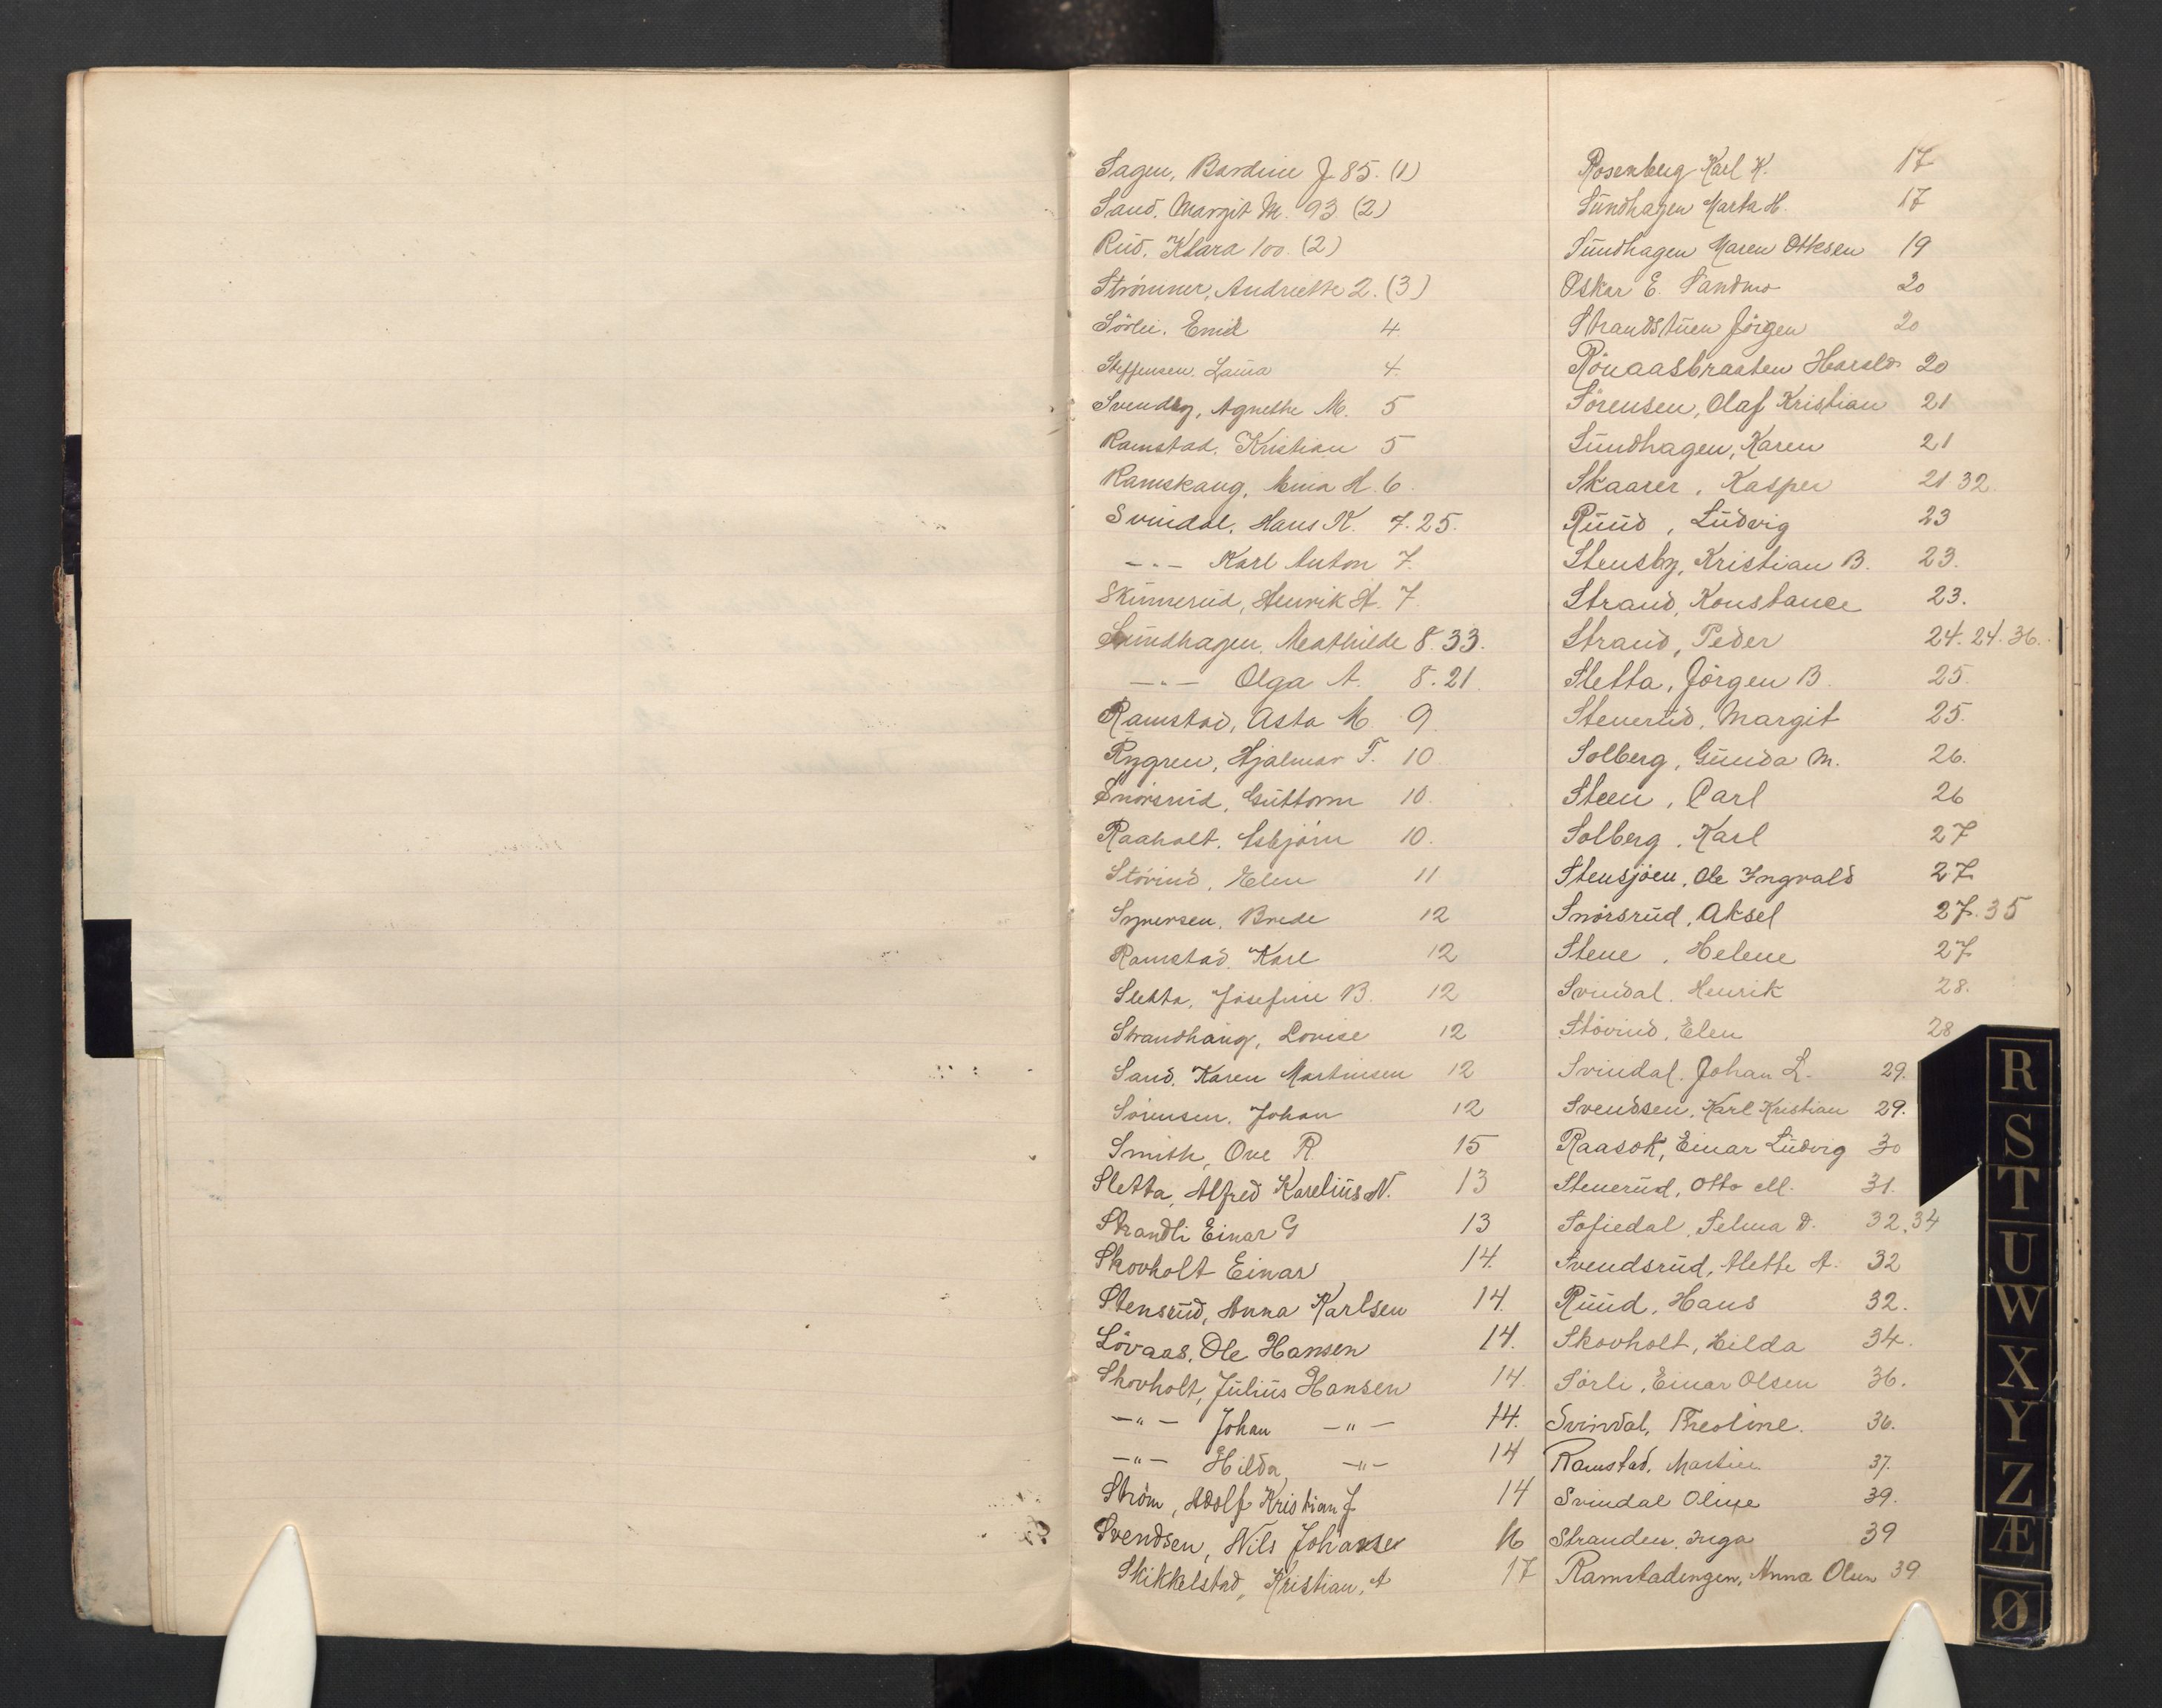 Sagen, Bardine J. 85. (1)
Sand. Margit M. 93 (2)
Rud. Klara 100. (2)
Strömmer, Andriette 2. (3)
Sörlie. Emil 4
Steffensen. Laura 4.
Svendby, Agnethe M. 5
Ramstad. Kristian 5
Ramskaug, Anna H. 6.
Svindal. Hans K. 7. 25.
-"- Karl Anton 7.
Skinnerud, Henrik A. 7.
Sundhagen. Mathilde 8. 33.
-"- Olga A. 8. 21.
Ramstad, Asta M. 9.
Rygren, Hjalmar T. 10
Snörsrud, Guttorm 10.
Raaholt. Asbjörn 10.
Stövind, Elen 11
Syversen. Brede 12
Ramstad. Karl 12
Sletta, Josefine B. 12
Strandhaug, Lovise 12
Sand. Karen Martinsen 12
Sörensen. Johan 12
Smith, Ove R. 15
Sletta, Alfred Karelius N. 13
Strandli Einar G 13
Skovholt Einar 14.
Stensrud, Anna Karlsen 14.
Lövaas, Ole Hansen 14.
Skovholt, Julius Hansen 14
-"- Johan -"- 14.
-"- Hilda, -"- 14
Ström, Adolf Kristian J. 14
Svendsen, Nils Johansen 16
Skikkelstad, Kristian, A 17
Rosenberg Karl K. 17
Sundhagen Marta H. 17
Sundhagen Maren Ottesen 19
Oskar E. Sandmo 20
Strandstuen Jörgen 20
Rönaasbraaten Harald 20
Sörensen, Olaf Kristian 21
Sundhagen, Karen 21
Skaarer, Kasper 21 32.
Ruud, Ludvig 23
Stensby, Kristian B. 23.
Strand, Konstance 23.
Strand, Peder 24. 24. 36.
Sletta, Jörgen B. 25.
Stenerud, Margit 25.
Solberg, Gunda M. 26.
Steen, Carl 26
Solberg, Karl 27
Stensjöen, Ole Ingvald 27
Snörsrud, Aksel 27. 35
Stene, Helene 27
Svindal. Henrik 28.
Stövind, Elen 28
Svindal. Johan L. 29.
Svendsen, Karl Kristian 29.
Raasok, Einar Ludvig 30
Stenerud, Otto M. 31.
Sofiedal, Selma D. 32. 34
Svendsrud, Mette A. 32
Ruud, Hans 32.
Skovholt, Hilda 34.
Sörli, Einar Olsen 36.
Svindal, Theoline. 36.
Ramstad, Martin 37.
Svindal Oline 39.
Stranden, Inga 39
Ramstadengen, Anna Olsen 39
R
S
T
U
W
X
Y
Z
Æ
Ø